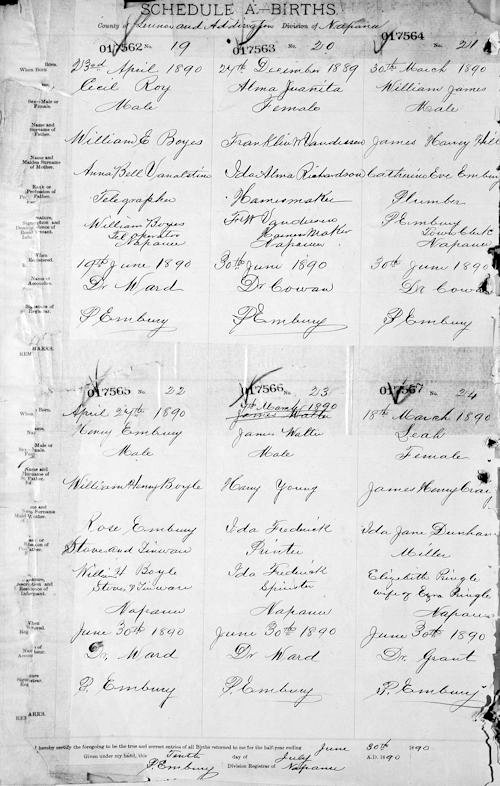 SCHEDULE A.—BIRTHS.
County of Lennox and Addington Division of Napanee
017562 No. 19 017563 No. 20 017564 21
When Born 23rd April 1890 27th December 1889 30th March 1890
Name Cecil Roy Alma Juanita William James
Sex—Male or Female. Male Female Male
Name and Surname of Father. William E Boyes Franklin W Vandusen James Harvey
Name and Maiden Surname of Mother. Anna Bell Vanalstine Ida Alma Richardson Catharine Eve Embury
Rank or Profession of Father. Telegrapher Harnessmaker Plumber
William Boyes F W Vandusen P Embury
Tel Operator Harness Maker Town Clerk
Napanee Napanee Napanee
When Registered. 19th June 1890 30th June 1890 30 June 1890
Name of Accoucheur. Dr Ward Dr Cowan Dr Cowan
Signature of Registrar. P Embury P Embury P Embury
REMARKS.
017565 No. 22 017566 No. 23 017567 No. 24
When Born. April 27th 1890 March 1890 18th March 1890
James Walter
Henry Embury James Walter Leah
Male or Female. Male Male Female
Name and Surname of Father. William Henry Boyle Harry Young James Henry
Rose Embury Ida Frederick Ida Jane Dunham
Stove and Tinware Printer Miller
William H Boyle Ida Frederick Elizabeth Pringle
Stoves & Tinware Spinster wife of Ezra Pringle
Napanee Napanee Napanee
When June 30th 1890 June 30th 1890 June 30th 1890
Dr. Ward Dr Ward Dr. Grant
P. Embury P. Embury P. Embury
REMARKS.
I hereby certify the foregoing to be the true and correct entries of all Births returned to me for the half-year ending June 30th 1890
Given under my hand, this Tenth day of July A.D. 1890
P. Embury Division Registrar of Napanee